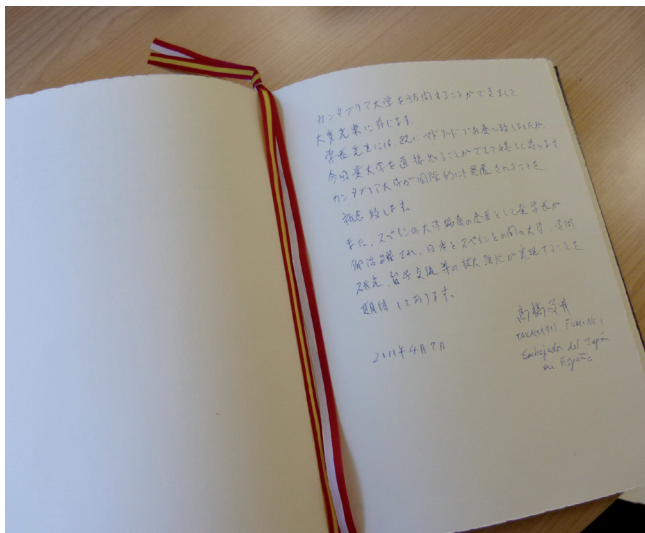 カンタブリア大学を訪問することができまして
大変光栄に存じます。
学長先生には、既にマドリードでお会い致しましたが、
今回貴大学を直接知ることができて嬉しく思います
カンタブリア大学が国際的にも発展されることを
祈念致します。
また、スペインの大学の会長として貴学長が
御活躍され、日本とスペインとの間の大学
研究、留学交流等の拡大強化が実現することを
期待しております。
高橋文明
TAKAHASHI FUMIAKI
Embajador del Japón
en España
4月7日